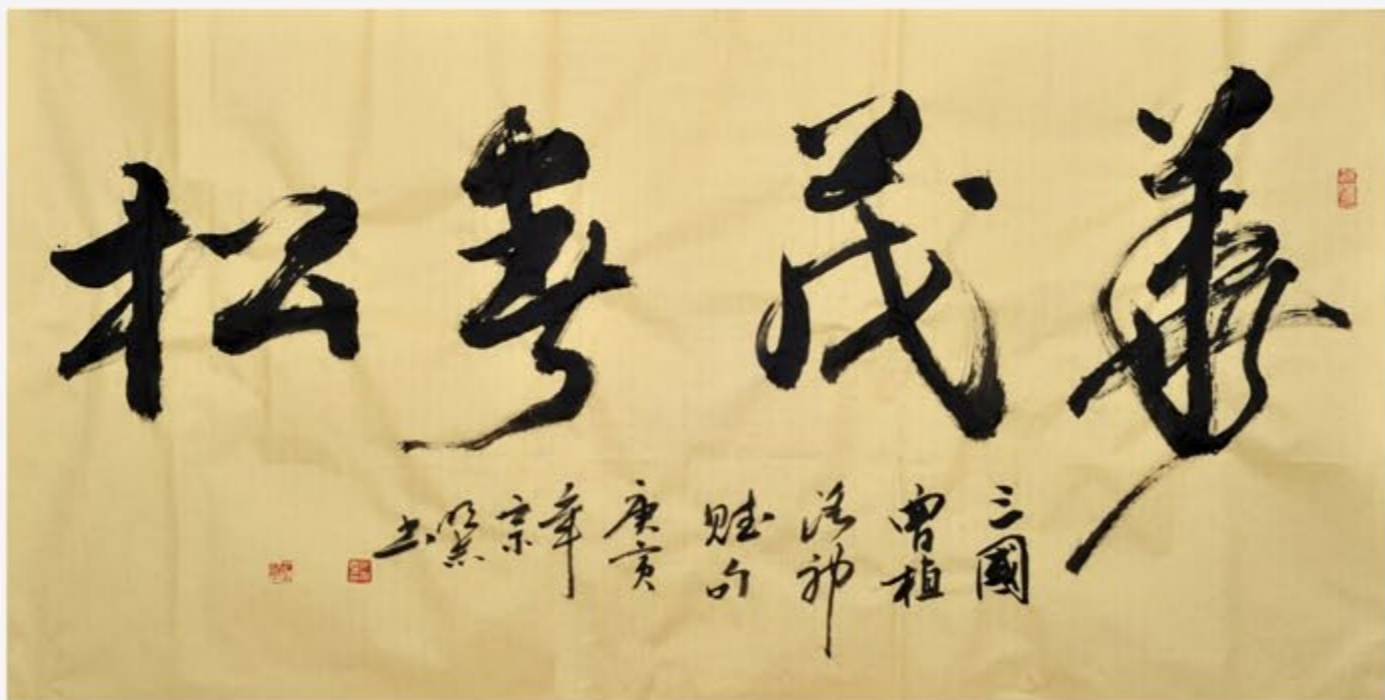 華茂春松
三國
曹植
洛神
賦句
庚寅
年
宗
書